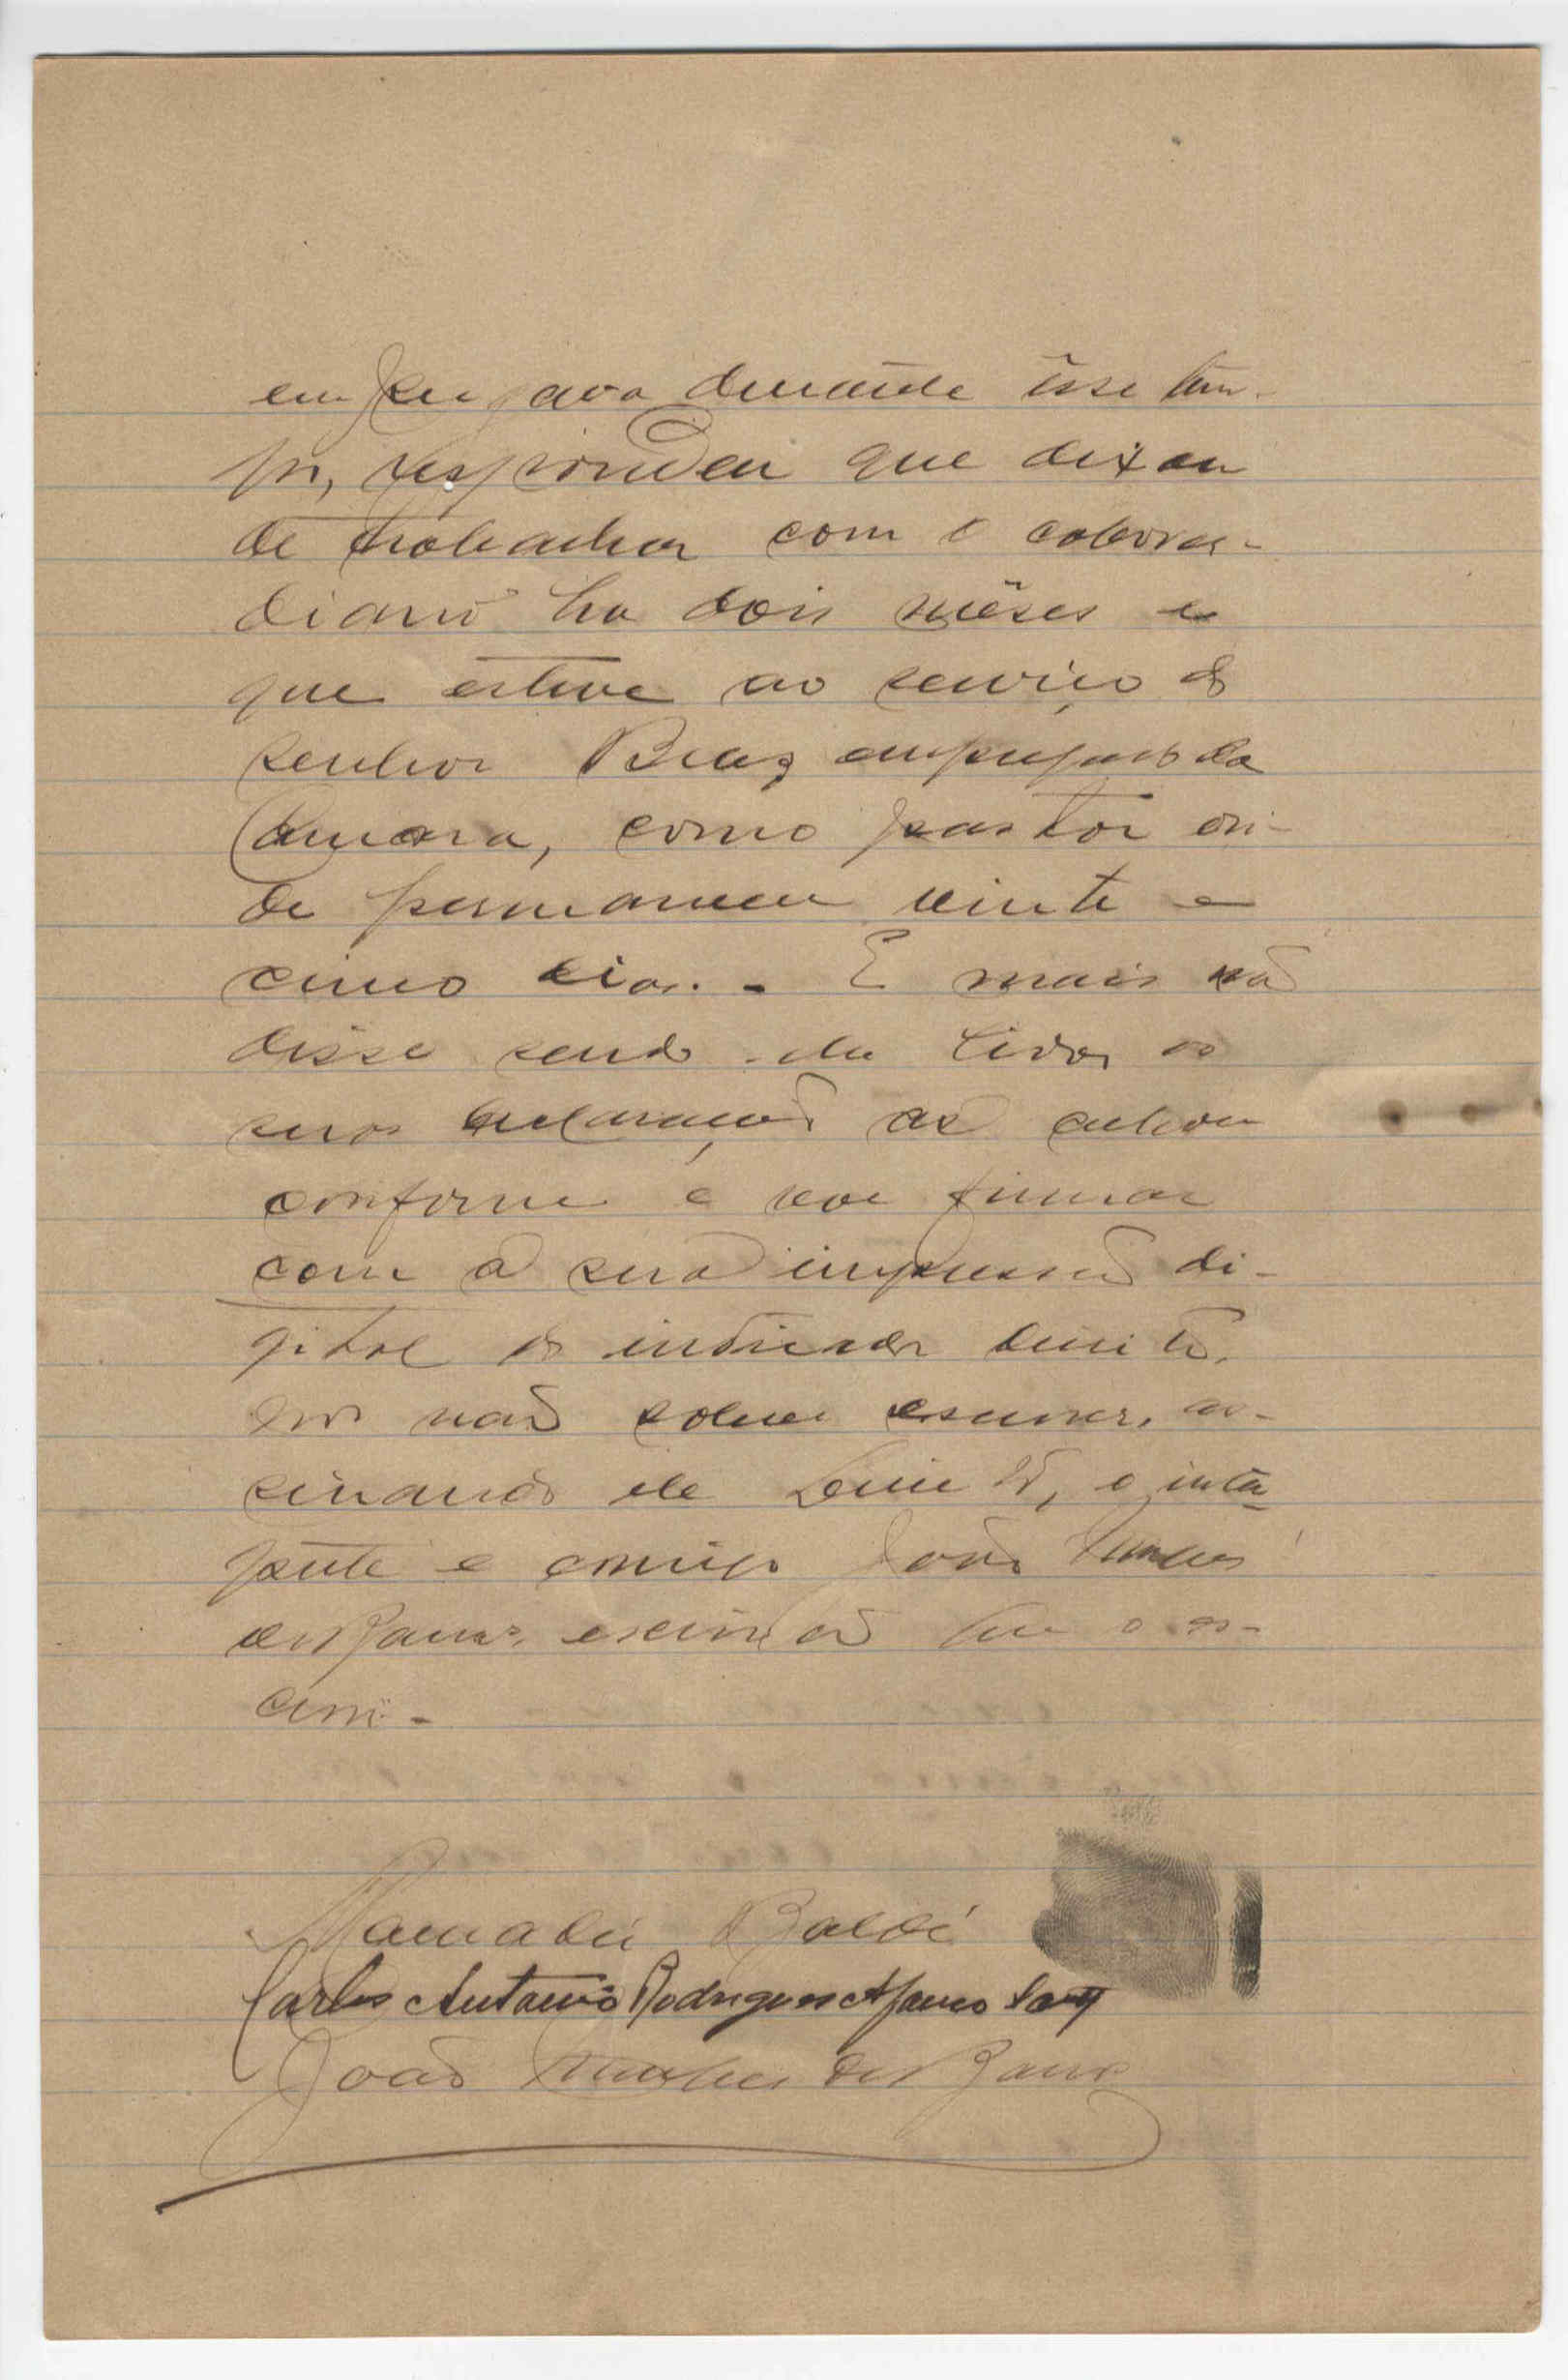 empregava durante êsse tem-
po, respondeu que dixou
de trabalhar com o cabover-
diano ha dois mêses e
que esteve ao serviço do
senhor Braz empregado da
Camara, como pastor on-
de permaneceu vinte e
cinco dias. - E mais não
disse sendo-lhe lidas as
suas declarações as achou
conforme e vae firmar
com a sua impressão di-
gital do indicador direito,
por não saber escrever, as-
sinando ele, o intér-
prete e comigo João
de Barros, escrivão que o es-
crevi-
Mamadú Baldé
Carlos Antonio Rodrigues
João de Barros